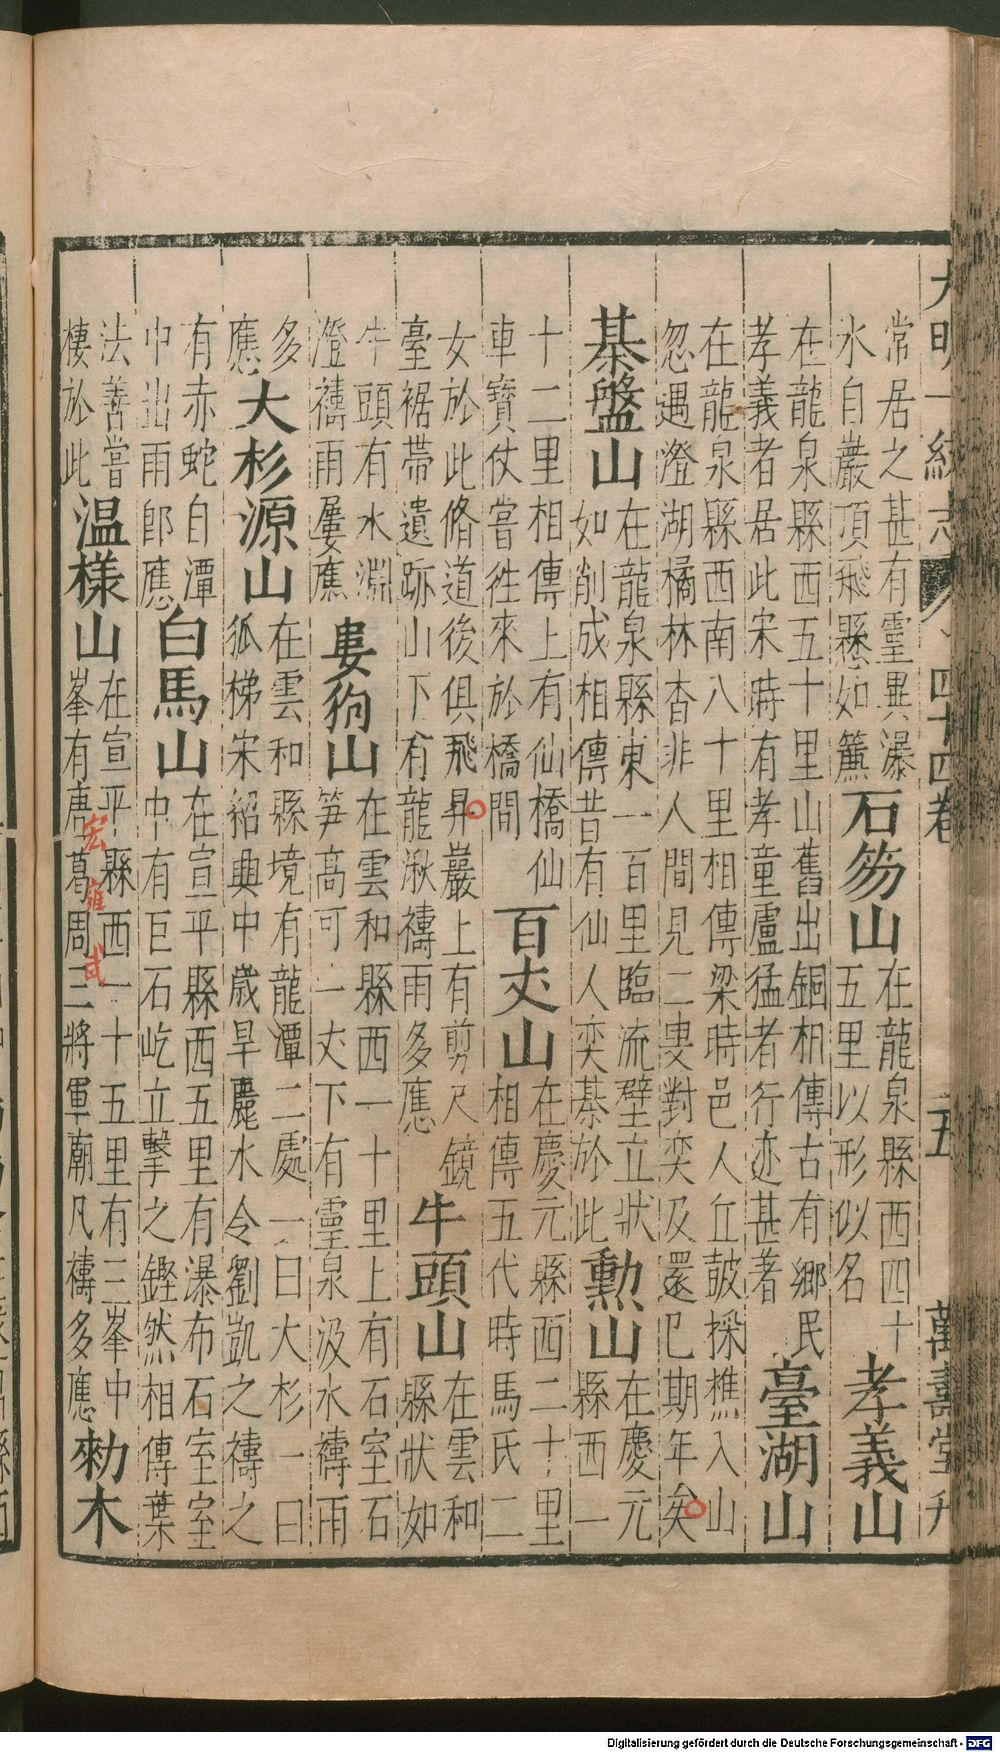 大明一統志 四十四卷 五 萬壽堂刋
常居之甚有靈異瀑
水自巖頂飛懸如簾
石笏山
在龍泉縣西四十
五里以形似名
孝義山
在龍泉縣西五十里山舊出銅相傳古有鄉民
孝義者居此宋時有孝童盧猛者行迹甚著
臺湖山
在龍泉縣西南八十里相傳梁時邑人丘皷採樵入山
忽遇澄湖橘林杳非人間見二叟對奕及還已期年矣
棊盤山
在龍泉縣東一百里臨流壁立狀
如削成相傳昔有仙人奕棊於此
勲山
在慶元
縣西一
十二里相傳上有仙橋仙
車寶仗嘗徃來於橋間
百丈山
在慶元縣西二十里
相傳五代時馬氏二
女於此脩道後俱飛昇巖上有剪尺鏡
臺裾帶遺跡山下有龍湫禱雨多應
牛頭山
在雲和
縣狀如
牛頭有水淵
澄禱雨屢應
婁狗山
在雲和縣西一十里上有石室石
笋高可一丈下有靈泉汲水禱雨
多
應
大杉源山
在雲和縣境有龍潭二處一曰大杉一曰
狐梯宋紹興中歲旱麗水令劉凱之禱之
有赤蛇自潭
中出雨郎應
白馬山
在宣平縣西五里有瀑布石室室
中有巨石屹立擊之鏗然相傳葉
法善嘗
棲於此
温樣山
在宣平縣西一十五里有三峯中
峯有唐葛周三將軍廟凡禱多應
勑木
宏
雍
武
Digitalisierung gefördert durch die Deutsche Forschungsgemeinschaft - DFG